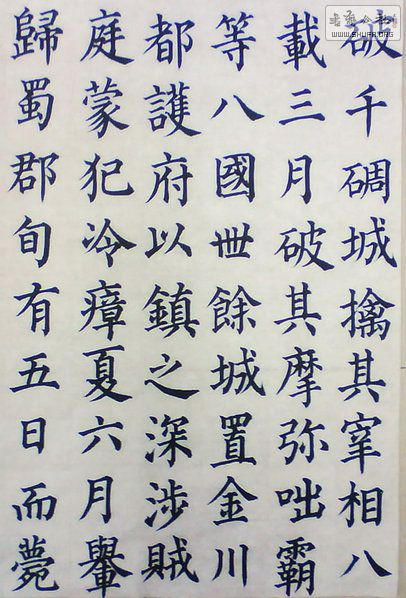 破千碉城擒其宰相八
載三月破其摩弥咄霸
等八國丗餘城置金川
都護府以鎮之深涉賊
庭蒙犯冷瘴夏六月轝
歸蜀郡旬有五日而薨
WWW.SHUFA.ORG